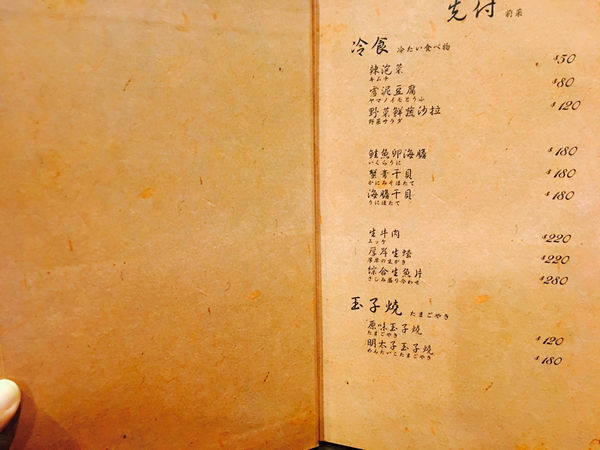 先付 前菜
冷食 冷たい食べ物
辣泡菜 $50
キムチ
雪泥豆腐 $80
ヤマノイモとうふ
野菜鮮蔬沙拉 $120
野菜サラダ
鮭魚卵海膽 $180
いくらうに
蟹膏干貝 $180
かにみそほたて
海膽干貝 $180
うにほたて
生牛肉 $220
ユッケ
厚岸生蠔 $220
厚岸の生がき
綜合生魚片 $280
さしみ盛り合わせ
玉子燒 たまごやき
原味玉子燒 $120
たまごやき
明太子玉子燒 $180
めんたいこたまごやき